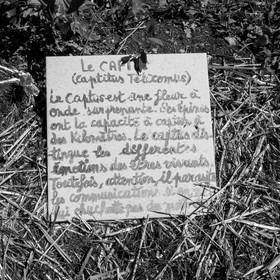 Le CAPT
(captitus Telicomus)
Le Captus est une fleur à
surprenante. Ses épines
ont la capacité à capter à
des kilomètres. Le captus dis-
tingue les différentes
émotions des êtres vivants.
Toutefois, attention il parasite
les communications
qui